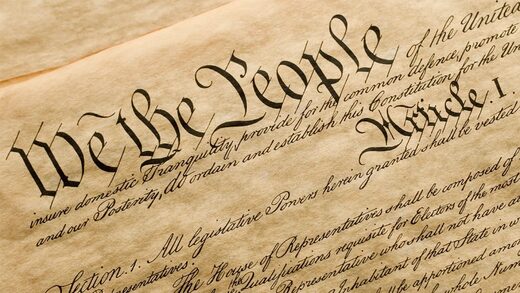 We the People of the United
insure domestic Tranquility, provide for the common defence, promote
and our Posterity, do ordain and establish this Constitution for the Un
Article. I.
Section. 1. All legislative Powers herein granted shall be vested
Representatives.
The House of Representatives shall be composed of
the Qualifications requisite for Electors of the most
Representative who shall not have a
Inhabitant of that State in w
shall be apportioned amo
whole Num